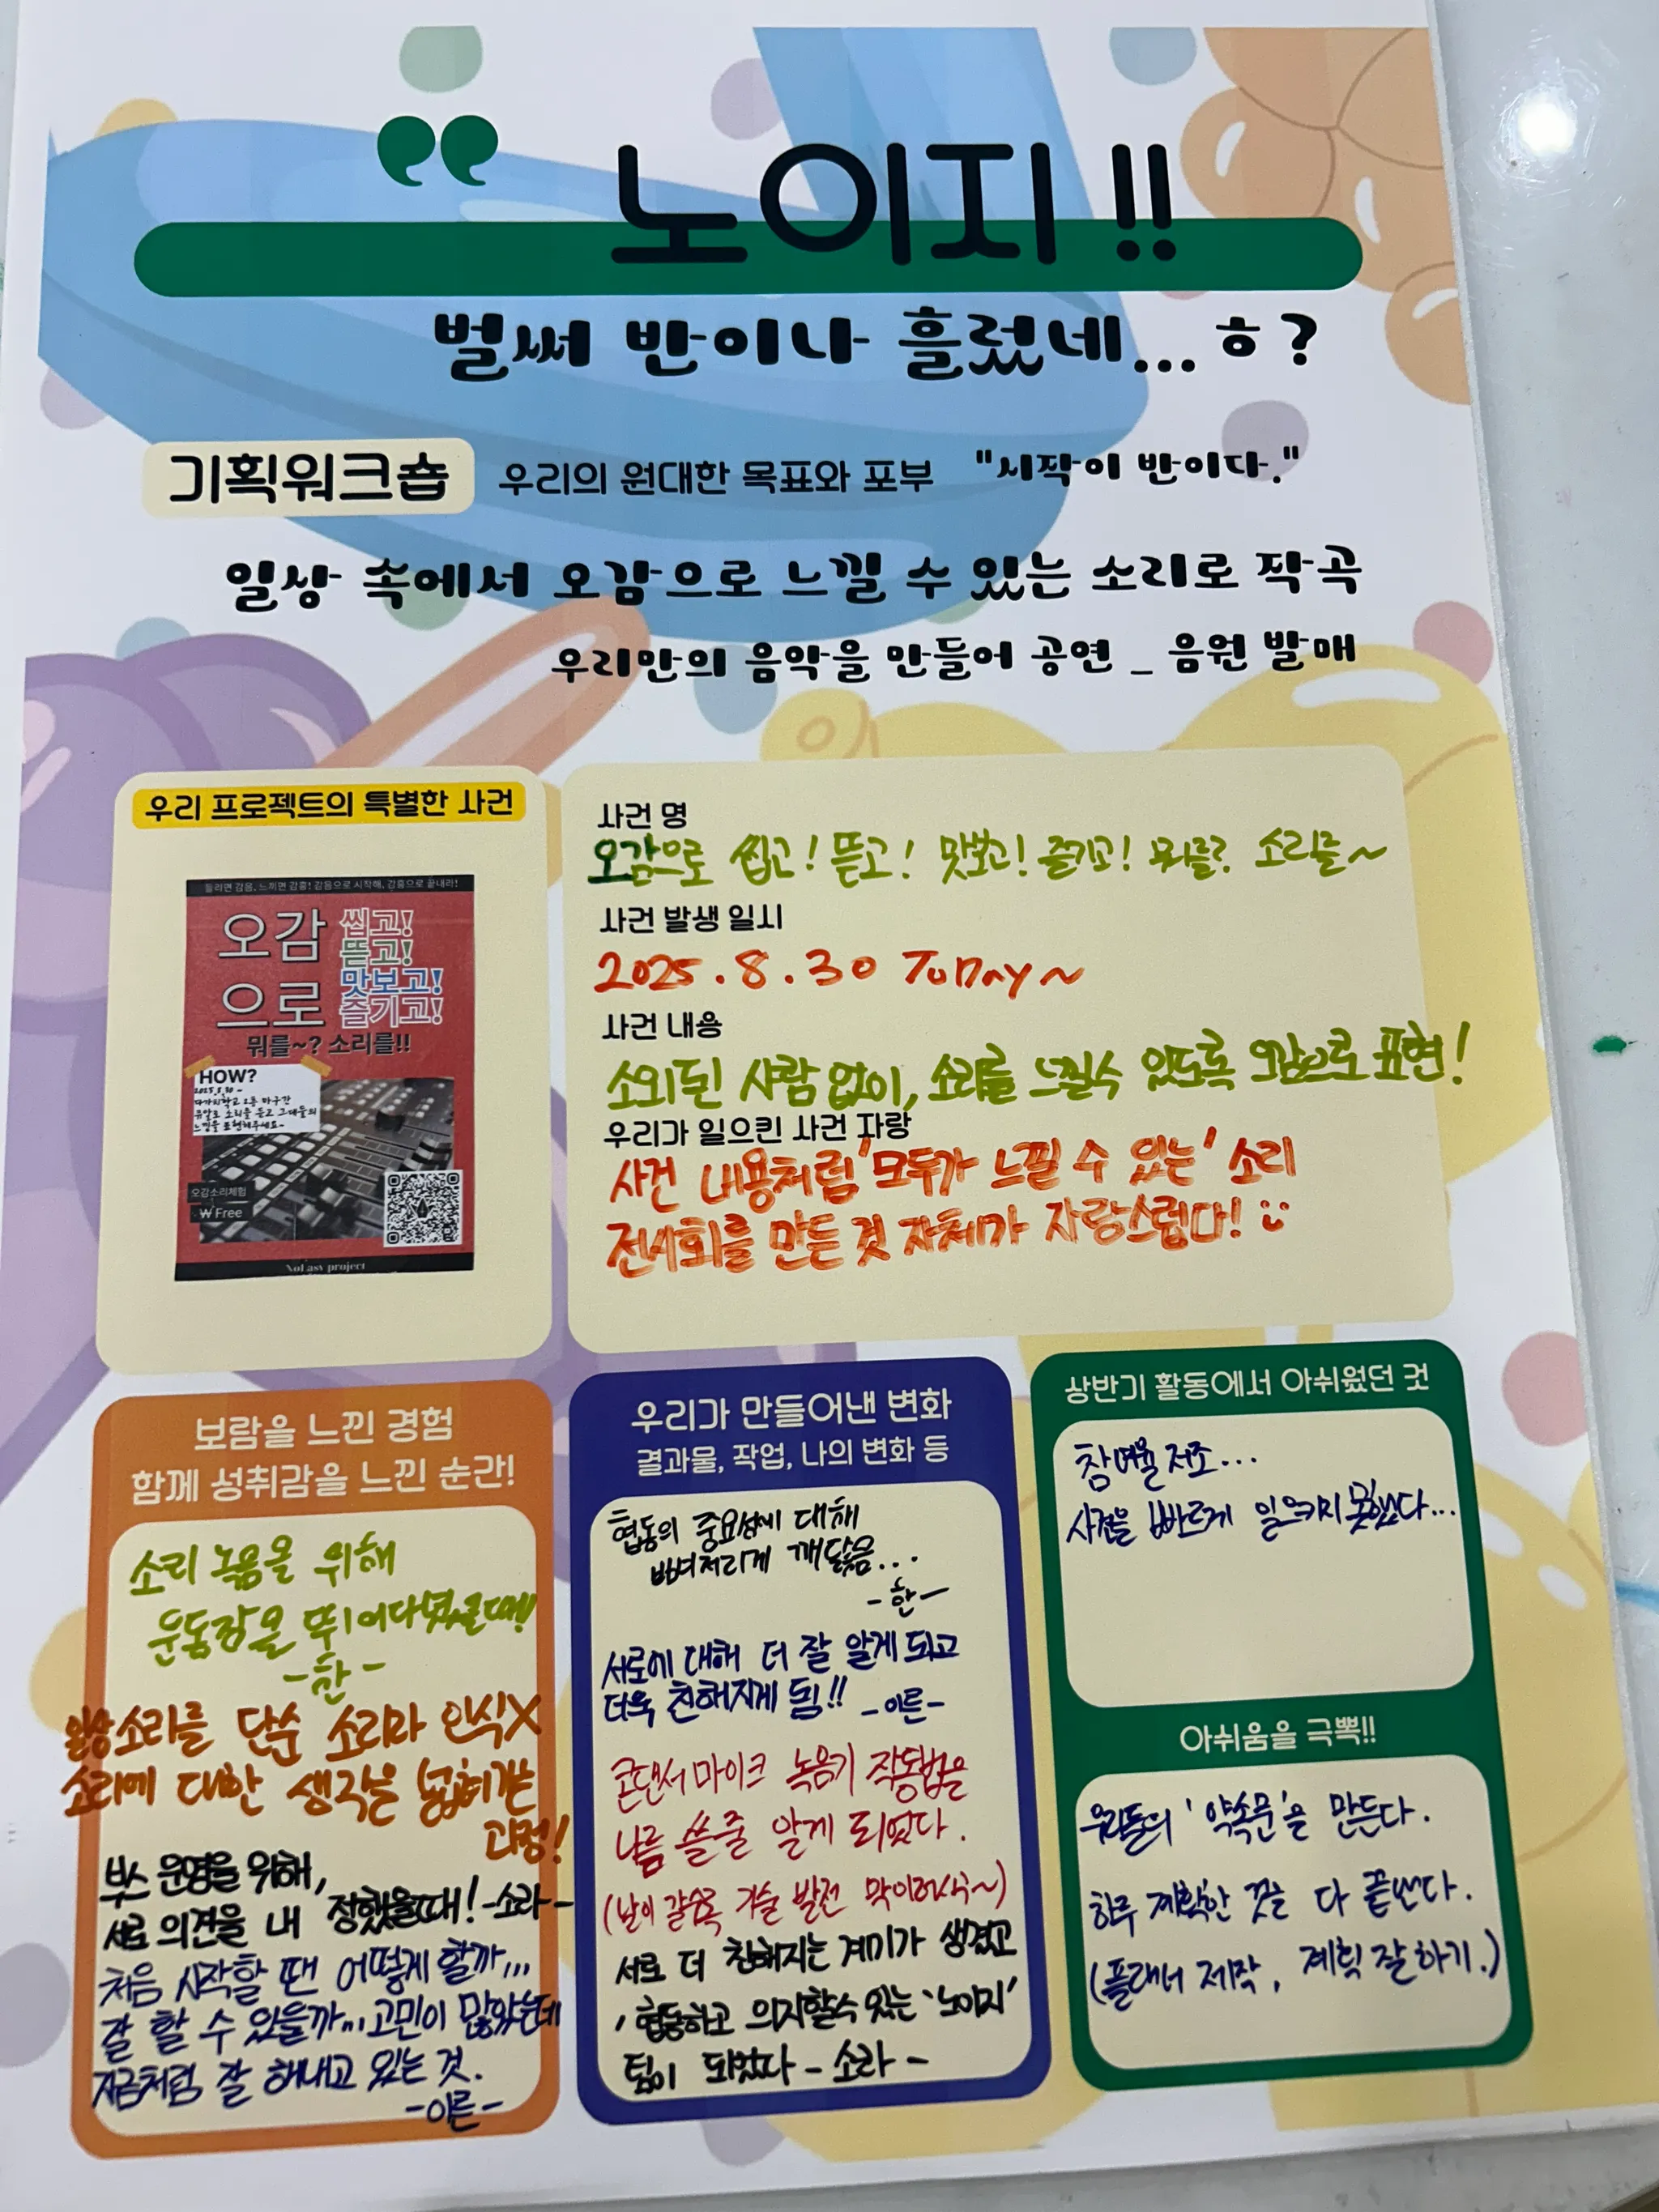 노이지 !!
벌써 반이나 흘렀네...ㅎ?
기획워크숍 우리의 원대한 목표와 포부 "시작이 반이다."
일상 속에서 오감으로 느낄 수 있는 소리로 작곡
우리만의 음악을 만들어 공연 _ 음원 발매
우리 프로젝트의 특별한 사건
들리면 감음, 느끼면 감흥! 감음으로 시작해, 감흥으로 끝내라!
오감
으로
씹고!
뜯고!
맛보고!
즐기고!
뭐를~? 소리를!!
HOW?
2025.8.30 -
오감소리체험
₩ Free
NoEasy project
사건 명
오감으로 씹고! 뜯고! 맛보고! 즐기고! 뭐를? 소리를~
사건 발생 일시
2025.8.30 ToDAy~
사건 내용
소외된 사람 없이, 소리를 느낄수 있도록 오감으로 표현!
우리가 일으킨 사건 자랑
사건 내용처럼 '모두가 느낄 수 있는' 소리
전시회를 만든 것 자체가 자랑스럽다!
보람을 느낀 경험
함께 성취감을 느낀 순간!
소리 녹음을 위해
운동장을 뛰어다녔을때!!
-한-
일상소리를 단순 소리라 인식X
소리에 대한 생각을 넓혀가는
과정!
부스 운영을 위해,
서로 의견을 내 정했을때! -소라-
처음 시작할 땐 어떻게 할까...
잘 할 수 있을까... 고민이 많았는데
지금처럼 잘 해내고 있는 것.
-이른-
우리가 만들어낸 변화
결과물, 작업, 나의 변화 등
협동의 중요성에 대해
뼈저리게 깨닳음...
-한-
서로에 대해 더 잘 알게 되고
더욱 친해지게 됨!! -이른-
콘덴서마이크 녹음기 작동법을
나름 쓸줄 알게 되었다.
(날이 갈수록 기술 발전 막이러시구~)
서로 더 친해지는 계기가 생겼고
, 협동하고 의지할수 있는 '노이지'
팀이 되었다 - 소라 -
상반기 활동에서 아쉬웠던 것
참여율 저조...
사건을 빠르게 일으키지 못했다...
아쉬움을 극뽁!!
우리들의 '약속문'을 만든다.
하루 계획한 것을 다 끝낸다.
(플래너 제작, 계획 잘하기.)